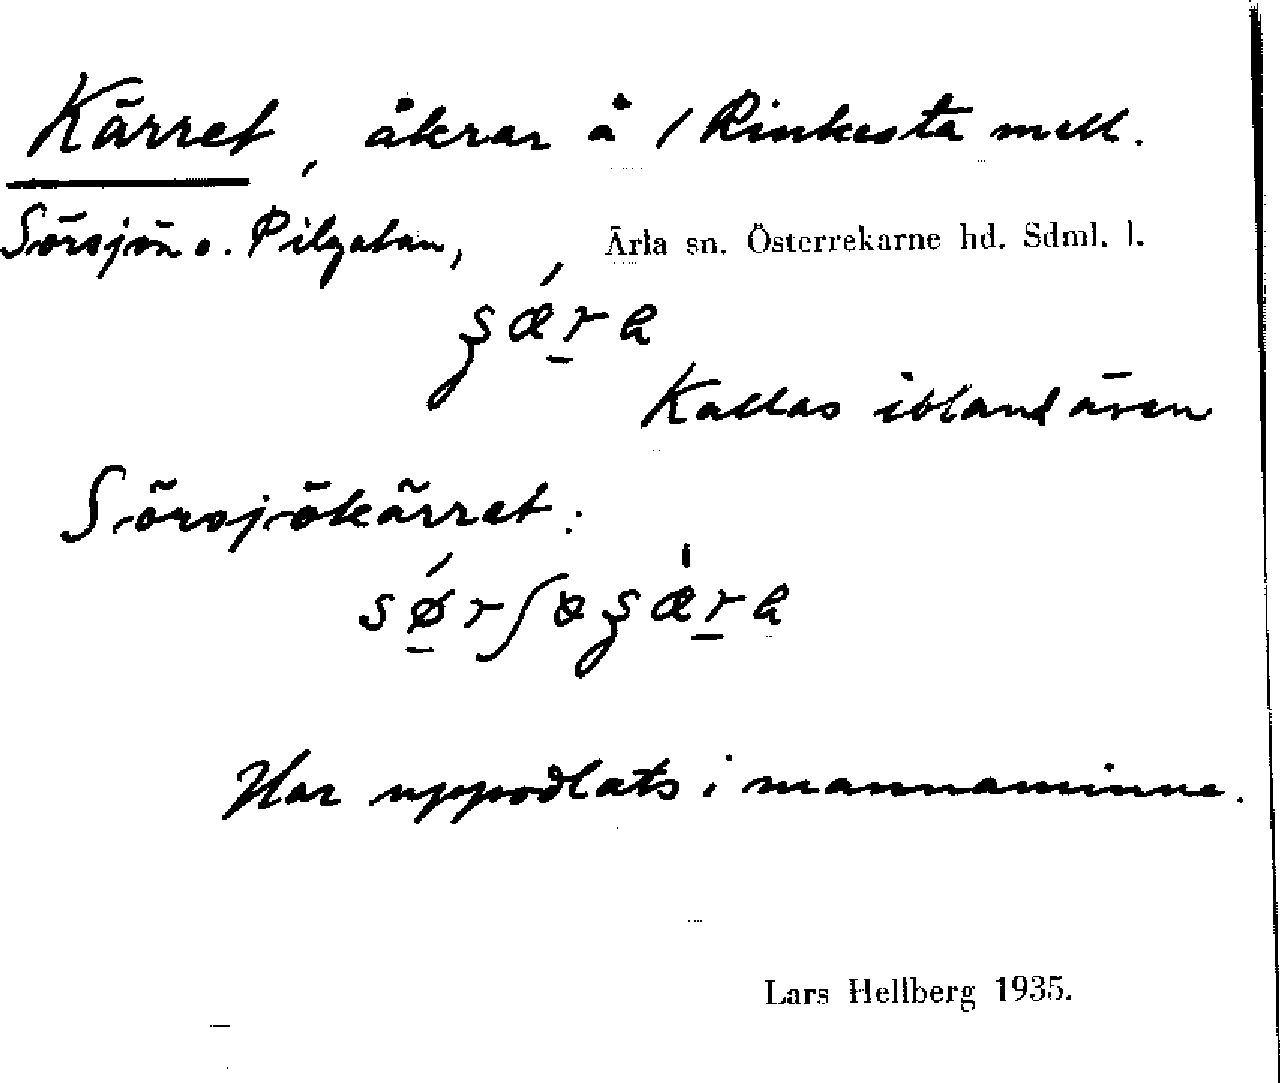 Kärret, åkrar å /Rinkesta mell.
Sörsjön o. Pilgatan, Ärla sn. Österrekarne hd. Sdml. l.
Kallas ibland även
Sörsjökärret:
Har uppodlats i mannaminne.
Lars Hellberg 1935.